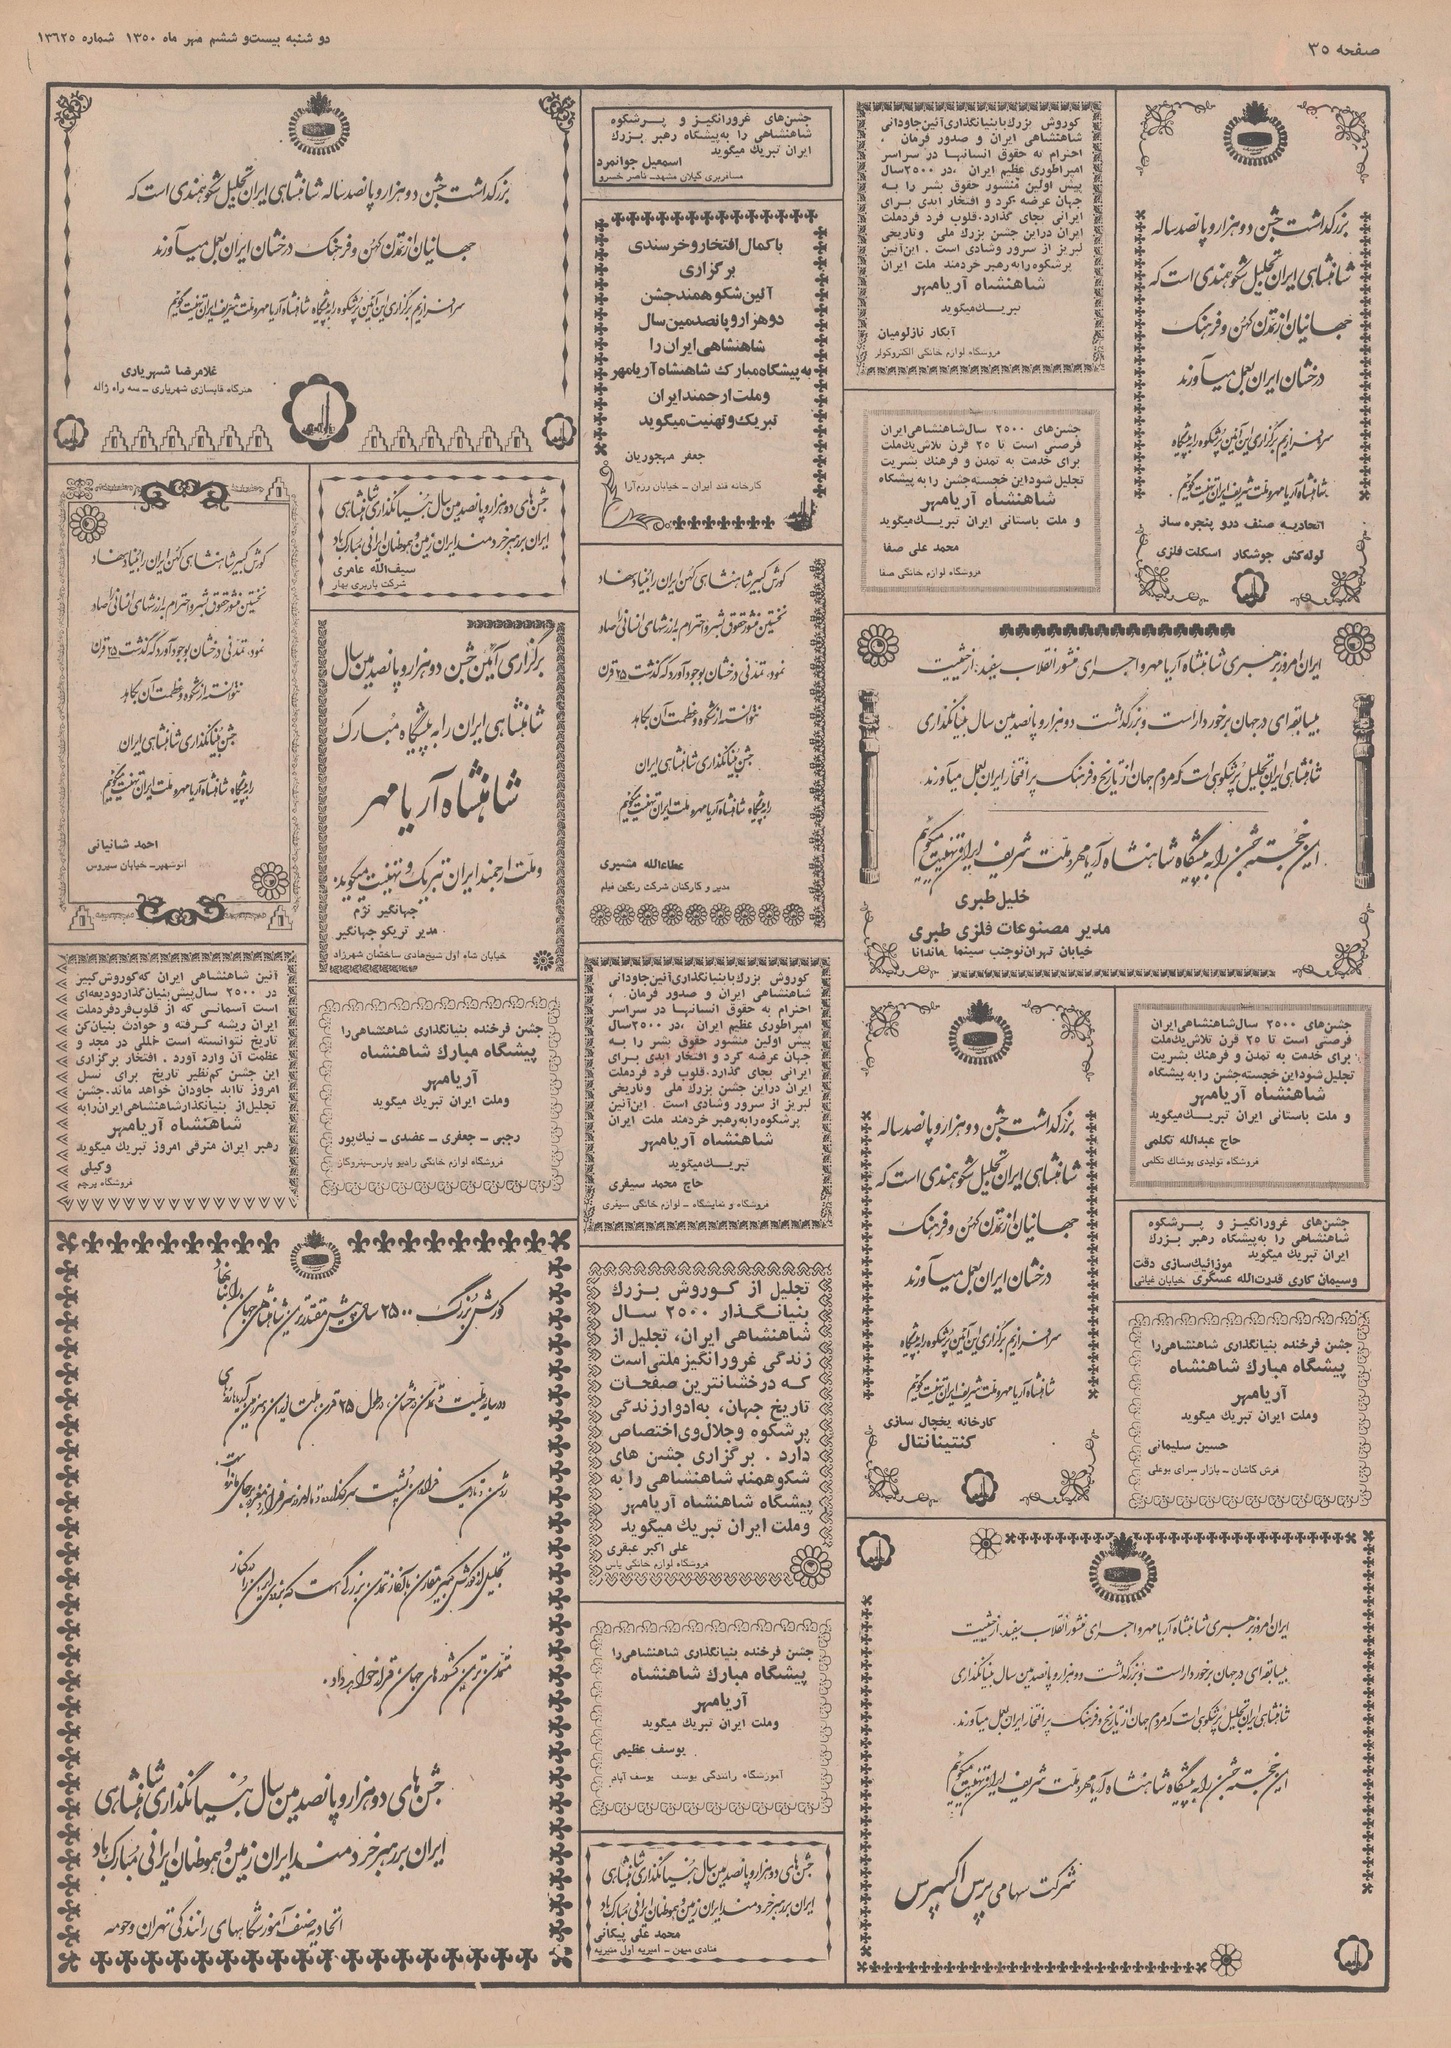 صفحه ۳۵
دو شنبه بیست‌و ششم مهر ماه ۱۳۵۰ شماره ۱۳۶۲۵
بزرگداشت جشن دو هزار و پانصد ساله
شاهنشاهی ایران تجلیل شکوهمندی است که
جهانیان از تمدن کهن و فرهنگ
درخشان ایران بعمل میآورند
سرافرازیم برگزاری این آئین پرشکوه را به پیشگاه
شاهنشاه آریامهر و ملت شریف ایران تهنیت گوئیم.
اتحادیه صنف درو پنجره ساز
لوله‌کش جوشکار اسکلت فلزی
کوروش بزرك با بنیانگذاری آئین جاودانی
شاهنشاهی ایران و صدور فرمان
احترام به حقوق انسانها در سراسر
امپراطوری عظیم ایران ،در ۲۵۰۰سال
پیش اولین منشور حقوق بشر را به
جهان عرضه کرد و افتخار ابدی برای
ایرانی بجای گذارد. قلوب فرد فردملت
ایران دراین جشن بزرك ملی وتاریخی
لبریز از سرور وشادی است . این‌آئین
پرشکوه‌را‌به‌رهبر خردمند ملت ایران
شاهنشاه آریامهر
تبریـك‌میگوید
آبکار نازلومیان
فروشگاه لوازم خانگی الکتروکولر
جشن‌های ۲۵۰۰ سال‌شاهنشاهی‌ایران
فرصتی است تا ۲۵ قرن تلاش‌یك‌ملت
برای خدمت به تمدن و فرهنك بشریت
تجلیل شود‌این خجسته‌جشن را‌به پیشگاه
شاهنشاه آریامهر
و ملت باستانی ایران تبریـك‌میگوید
محمد علی صفا
فروشگاه لوازم خانگی صفا
جشن‌های غرورانگیز و پـرشکوه
شاهنشاهی را به‌پیشگاه رهبر بـزرك
ایران تبریك میگوید
اسمعیل جوانمرد
مسافربری گیلان مشهد- ناصر خسرو
با کمال افتخار و خرسندی
برگزاری
آئین شکوهمند جشن
دوهزار و پانصدمین سال
شاهنشاهی ایران را
به پیشگاه مبارك شاهنشاه آریامهر
و ملت ارجمند ایران
تبریك و تهنیت میگوید
جعفر مهجوریان
کارخانه قند ایران - خیابان رزم‌آرا
بزرگداشت جشن دو هزار و پانصد ساله شاهنشاهی ایران تجلیل شکوهمندی است که
جهانیان از تمدن کهن و فرهنگ درخشان ایران بعمل میآورند
سرافرازیم برگزاری این آئین پرشکوه را به پیشگاه شاهنشاه آریامهر و ملت شریف ایران تهنیت گوئیم
غلامرضا شهریاری
هنرگاه قابسازی شهریاری - سه راه ژاله
جشن های دو هزار و پانصدمین سال بنیانگذاری شاهنشاهی
ایران بر رهبر خردمند ایران زمین و هموطنان ایرانی مبارك باد
سیف‌الله عامری
شرکت باربری بهار
کورش کبیر شاهنشاهی کهن ایران را بنیاد نهاد
نخستین منشور حقوق بشر و احترام به ارزشهای انسانی را صادر
نمود، تمدنی درخشان بوجود آورد که گذشت ۲۵ قرن
نتوانسته از شکوه و عظمت آن بکاهد
جشن بنیانگذاری شاهنشاهی ایران
را به پیشگاه شاهنشاه آریامهر و ملت ایران تهنیت میگوئیم
احمد شانیانی
انوشهپر- خیابان سیروس
برگزاری آئین جشن دو هزار و پانصدمین سال
شاهنشاهی ایران را به پیشگاه مبارک
شاهنشاه آریامهر
و ملت ارجمند ایران تبریک و تهنیت میگوید:
جهانگیر نژم
مدیر تریکو جهانگیر
خیابان شاه اول شیخ‌هادی ساختمان شهرزاد
کورش کبیر شاهنشاهی کهن ایران را بنیاد نهاد
نخستین منشور حقوق بشر و احترام به ارزشهای انسانی را صادر
نمود، تمدنی درخشان بوجود آورد که گذشت ۲۵ قرن
نتوانسته از شکوه و عظمت آن بکاهد
جشن بنیانگذاری شاهنشاهی ایران
را به پیشگاه شاهنشاه آریامهر و ملت ایران تهنیت میگوئیم
عطاءالله مشیری
مدیر و کارکنان شرکت رنگین فیلم
ایران امروز برهبری شاهنشاه آریامهر و اجرای منشور انقلاب سفید، از حیثیت
بیسابقه‌ای در جهان برخوردار است و بزرگداشت دو هزار و پانصدمین سال بنیانگذاری
شاهنشاهی ایران تجلیل پرشکوهی است که مردم جهان از تاریخ و فرهنگ پر افتخار ایران بعمل میآورند.
این خجسته جشن را به پیشگاه شاهنشاه آریامهر و ملت شریف ایران تهنیت میگوئیم
خلیل طبری
مدیر مصنوعات فلزی طبری
خیابان تهران‌نو‌جنب سینما ماندانا
آئین شاهنشاهی ایران که‌کوروش‌کبیر
در ۲۵۰۰ سال‌پیش‌بنیان‌گذارد‌ودیعه‌ای
است آسمانـی که از قلوب‌فرد‌فرد‌ملت
ایران ریشه گـرفته و حوادث بنیان‌کن
تاریخ نتوانسته است خللی در مجد و
عظمت آن وارد آورد . افتخار برگزاری
این جشن کم‌نظیر تاریخ برای نسل
امروز تاابد جاودان خواهد ماند.جشن
تجلیل‌از بنیانگذار‌شاهنشاهی‌ایران‌را‌به
شاهنشاه آریامهر
رهبر ایران مترقی امروز تبریك میگوید
وکیلی
فروشگاه پرچم
جشن فرخنده بنیانگذاری شاهنشاهی‌را
پیشگاه مبارك شاهنشاه
آریامهر
وملت ایران تبریك میگوید
رجبی - جعفری - عضدی - نیك‌پور
فروشگاه لوازم خانگی رادیو پارس-پتروگاز
کوروش بزرك با بنیانگذاری آئین جاودانی
شاهنشاهی ایران و صدور فرمان
احترام به حقوق انسانها در سراسر
امپراطوری عظیم ایران ،در ۲۵۰۰سال
پیش اولین منشور حقوق بشر را به
جهان عرضه کرد و افتخار ابدی برای
ایرانی بجای گذارد. قلوب فرد فردملت
ایران دراین جشن بزرك ملی وتاریخی
لبریز از سرور وشادی است . این‌آئین
پرشکوه‌را‌به‌رهبر خردمند ملت ایران
شاهنشاه آریامهر
تبریـك‌میگوید
حاج محمد سیفری
فروشگاه و نمایشگاه - لوازم خانگی سیفری
بزرگداشت جشن دو هزار و پانصد ساله
شاهنشاهی ایران تجلیل شکوهمندی است که
جهانیان از تمدن کهن و فرهنگ
درخشان ایران بعمل میآورند
سرافرازیم برگزاری این آئین پرشکوه را به پیشگاه
شاهنشاه آریامهر و ملت شریف ایران تهنیت گوئیم
کارخانه یخچال سازی
کنتیناتال
جشن‌های ۲۵۰۰ سال‌شاهنشاهی‌ایران
فرصتی است تا ۲۵ قرن تلاش‌یك‌ملت
برای خدمت به تمدن و فرهنك بشریت
تجلیل شود‌این خجسته‌جشن را‌به پیشگاه
شاهنشاه آریامهر
و ملت باستانی ایران تبریـك‌میگوید
حاج عبدالله تکلمی
فروشگاه تولیدی پوشاك تکلمی
جشن‌های غرورانگیز و پـرشکوه
شاهنشاهی را به‌پیشگاه رهبر بـزرك
ایران تبریك میگوید
موزائیك‌سازی دقت
وسیمان کاری قدرت‌الله عسگری خیابان غیاثی
جشن فرخنده بنیانگذاری شاهنشاهی‌را
پیشگاه مبارك شاهنشاه
آریامهر
وملت ایران تبریك میگوید
حسین سلیمانی
فرش کاشان - بازار سرای بوعلی
تجلیل از کـوروش بـزرك
بنیانـگذار ۲۵۰۰ سـال
شاهنشاهی ایران، تجلیل از
زندگی غرورانگیز ملتی‌است
کـه درخشانترین صفحـات
تاریخ جهان، به‌ادوار‌زندگی
پرشکوه وجلال‌وی‌اختصاص
دارد . برگزاری جشن های
شکوهمند شاهنشاهی را به
پیشگاه شاهنشاه آریامهر
وملت ایران تبریك میگوید
علی اکبر عبقری
فروشگاه لوازم خانگی یاس
جشن فرخنده بنیانگذاری شاهنشاهی‌را
پیشگاه مبارك شاهنشاه
آریامهر
وملت ایران تبریك میگوید
یوسف عظیمی
آموزشگاه رانندگی یوسف یوسف آباد
جشن های دو هزار و پانصدمین سال بنیانگذاری شاهنشاهی
ایران بر رهبر خردمند ایران زمین و هموطنان ایرانی مبارك باد
محمد علی پیکانی
قنادی میهن - امیریه اول منیریه
کورش بزرگ ۲۵۰۰ سال پیش مقتدرترین شاهنشاهی جهان را بنا نهاد
در طول ۲۵ قرن ملت ایران
تجلیل از کورش کبیر
متمدن ترین کشورهای جهان قرار خواهد داد.
جشن های دو هزار و پانصدمین سال بنیانگذاری شاهنشاهی
ایران بر رهبر خردمند ایران زمین و هموطنان ایرانی مبارک باد
اتحادیه صنف آموزشگاههای رانندگی تهران و حومه
ایران امروز برهبری شاهنشاه آریامهر و اجرای منشور انقلاب سفید، از حیثیت
بیسابقه‌ای در جهان برخوردار است و بزرگداشت دو هزار و پانصدمین سال بنیانگذاری
شاهنشاهی ایران تجلیل پرشکوهی است که مردم جهان از تاریخ و فرهنگ پر افتخار ایران بعمل میآورند.
این خجسته جشن را به پیشگاه شاهنشاه آریامهر و ملت شریف ایران تهنیت میگوئیم
شرکت سهامی پرس اکسپرس